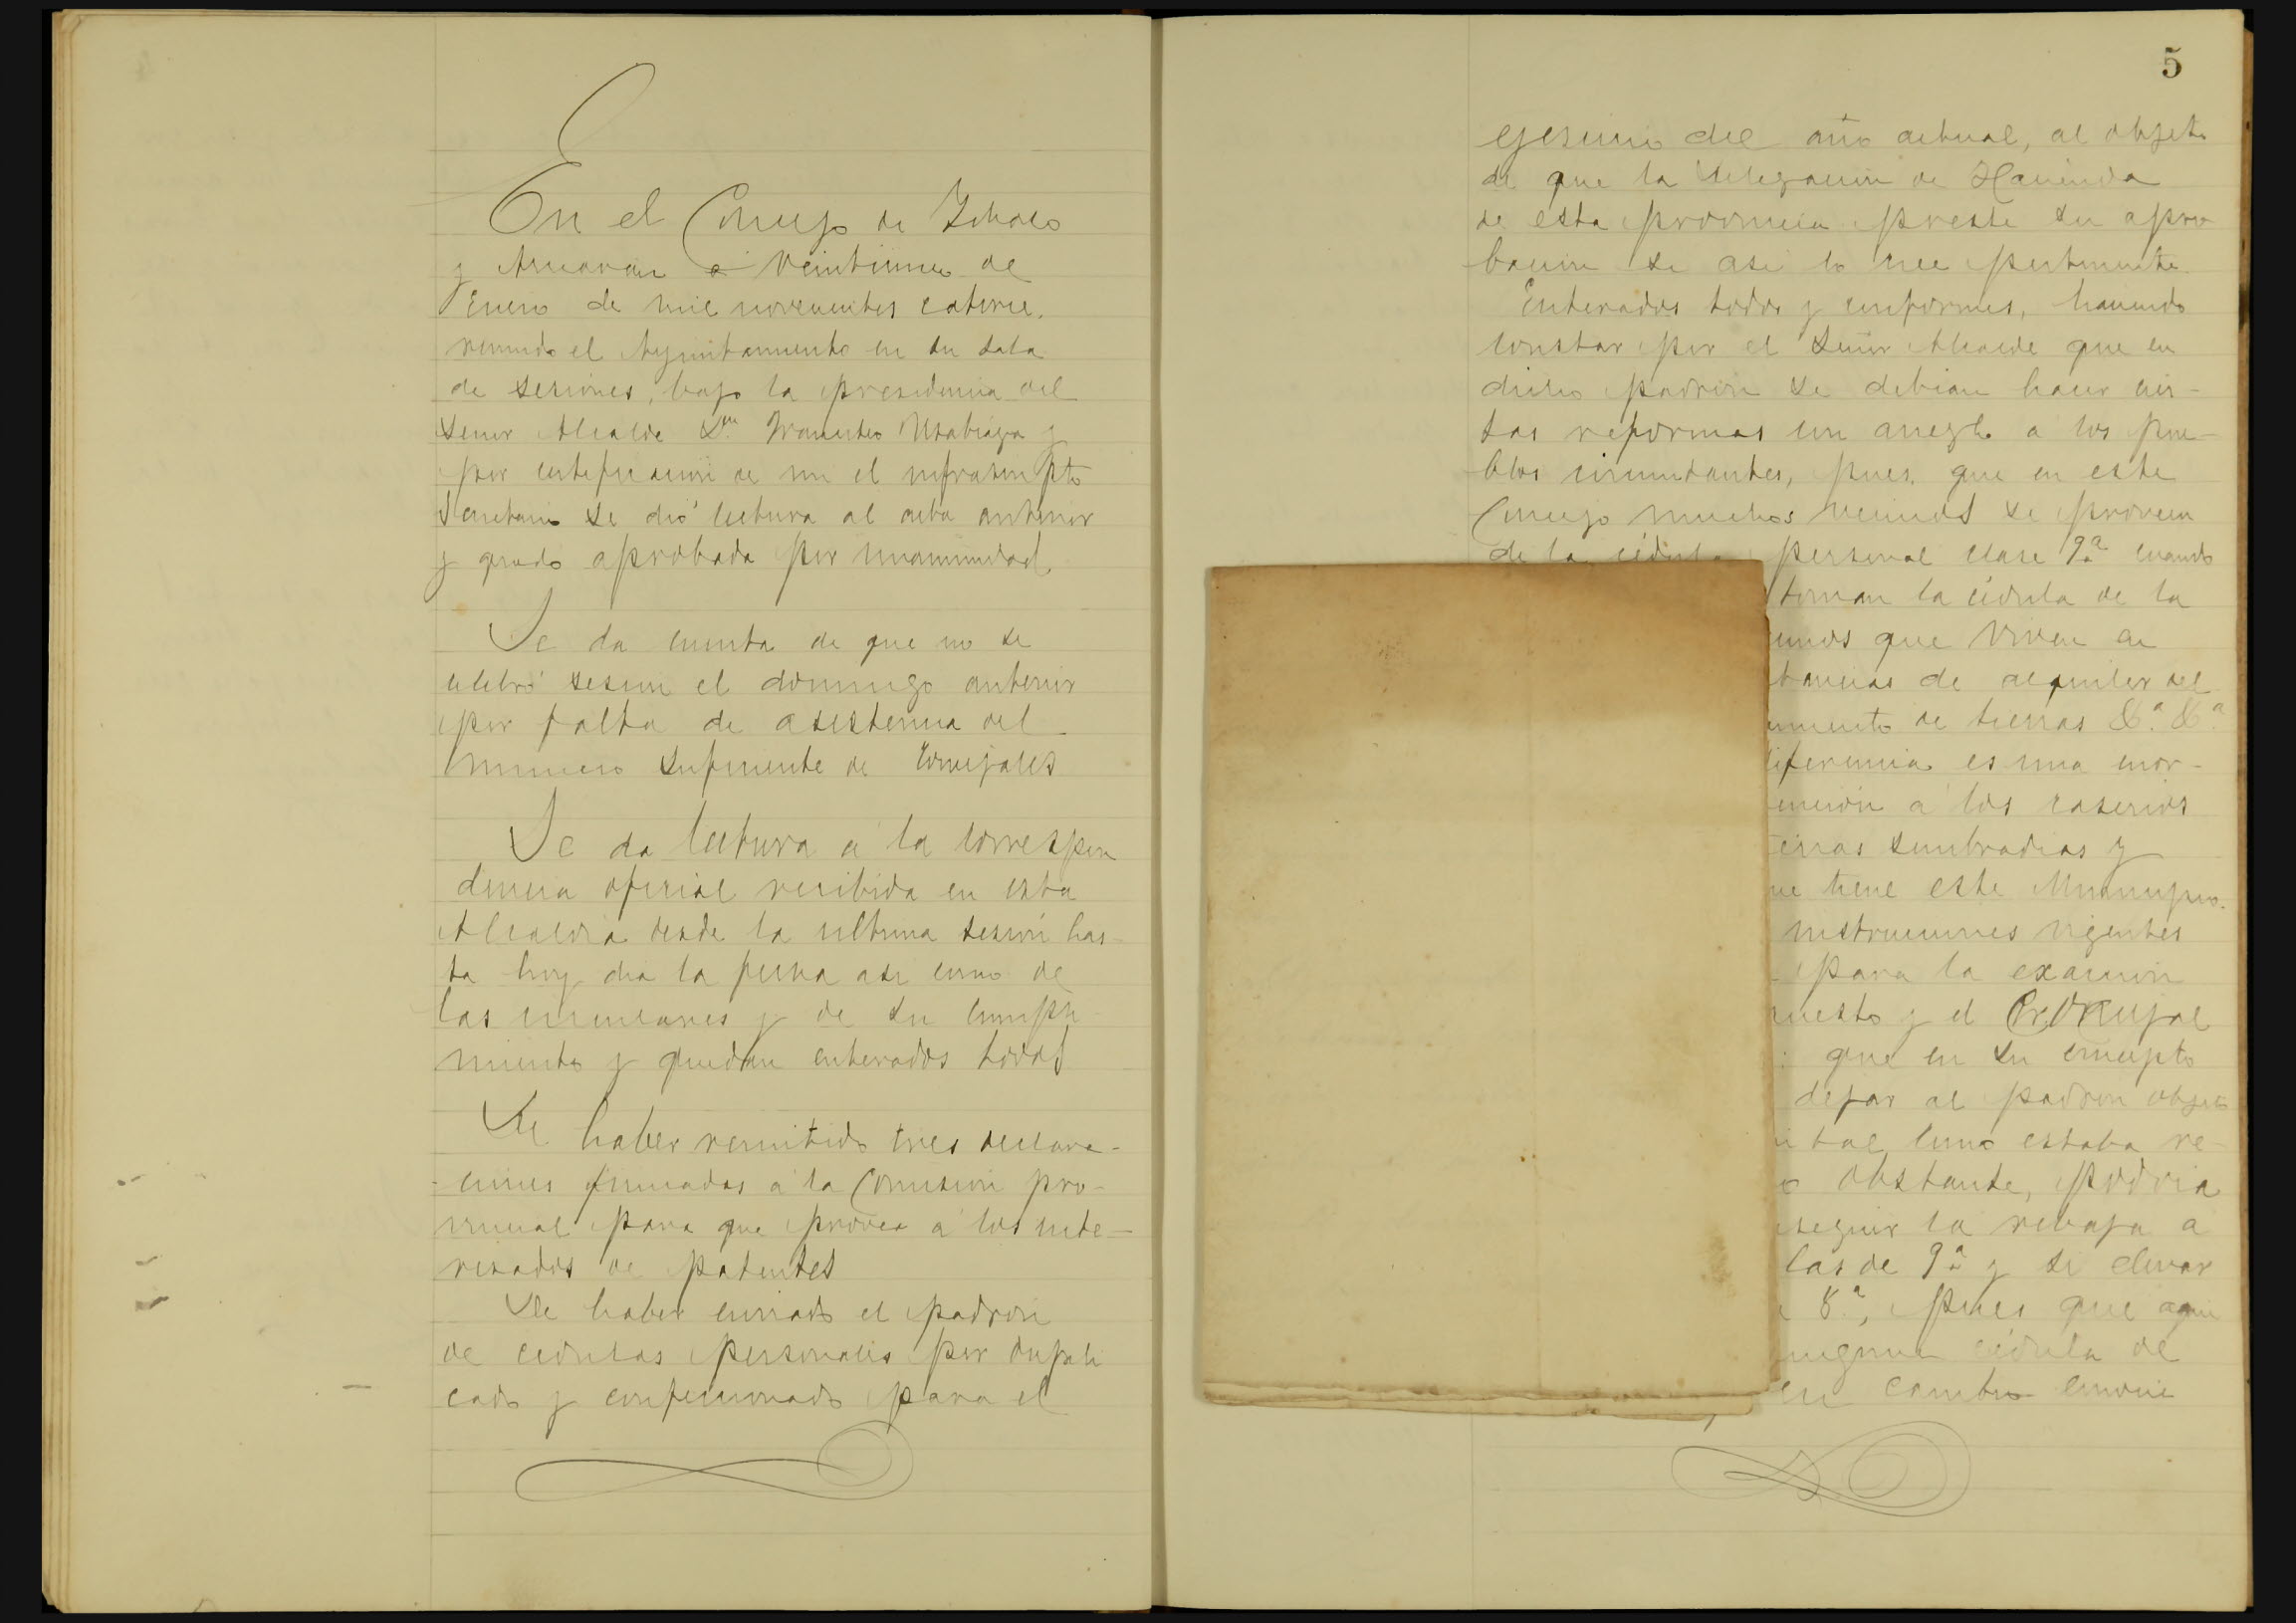 En el Concejo de Ichaso
y Arucarán a veinticinco de
Enero de mil novecientos catorce,
reunido el Ayuntamiento en su sala
de sesiones, bajo la presidencia del
Señor Alcalde Dn. Francisco Usabiaga y
por certificación de mi el infrascripto
Secretario se dió lectura al acta anterior
y quedó aprobada por unanimidad.
Se da cuenta de que no se
celebró sesión el domingo anterior
por falta de asistencia del
número suficiente de Concejales
Se da lectura a la correspon
dencia oficial recibida en esta
Alcaldía desde la ultima sesión has-
ta hoy dia la fecha asi como de
las circulares y de su cumpli
miento y quedan enterados todos
De haber remitido tres declara-
ciones firmadas á la Comisión pro-
vincial para que provea á los inte-
resados de patentes
De haber enviado el padrón
de cedulas personales por dupli
cado y confeccionado para el
5
ejercicio del año actual, al objeto
de que la Delegación de Hacienda
de esta provincia preste su apro
bación si asi lo cree pertinente.
Enterados todos y conformes, haciendo
constar por el Señor Alcalde que en
dicho padrón se debian hacer cier-
tas reformas con arreglo a los pue-
blos circundantes, pues, que en este
Concejo muchos vecinos se proveen
de la cédula personal clase 9.ª cuando
toman la cédula de la
cinos que viven en
tancias de alquiler del
amiento de tierras &.ª &.ª
iferencia es una enor-
ención á los caserios
ierras sembradias y
ue tiene este Municipio.
instrucciones vigentes
para la exacción
uesto y el Concejal
que en su concepto
dejar al padrón objeto
tal como estaba re-
o obstante, podria
seguir la rebaja a
las de 9.ª y si elevar
8.ª, pues que aqui
ninguna cédula de
en cambio conocie